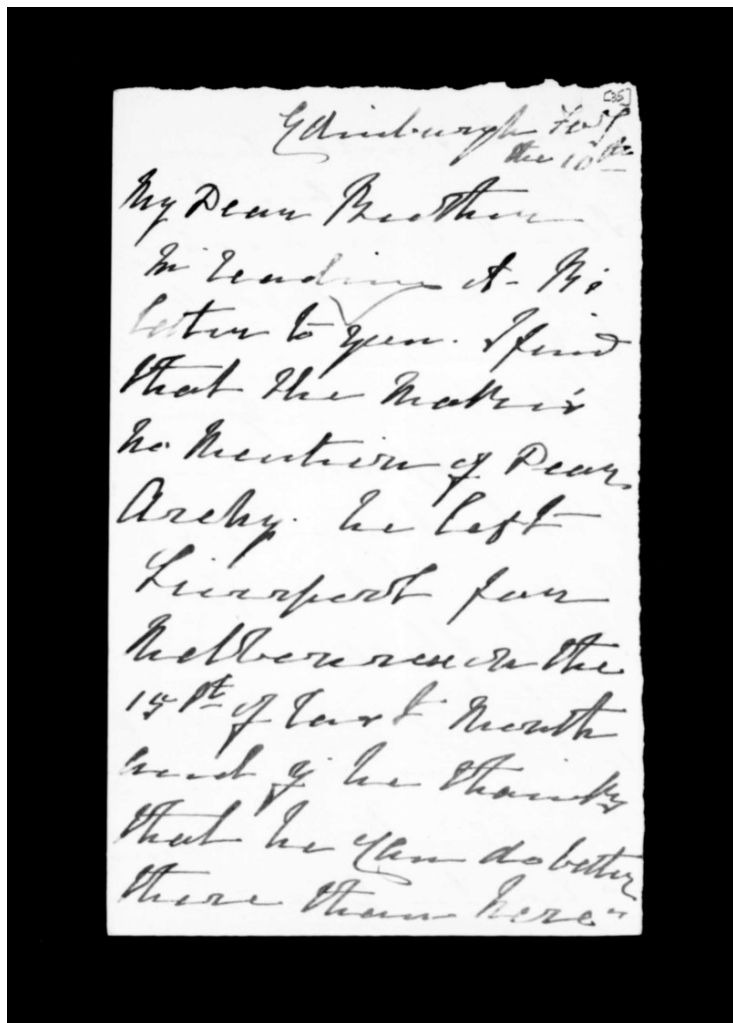 [35]
Edinburgh
the 10th
My Dear Brother
In reading A - Bs
letter to you. I find
that the makes
no mention of Dear
Archy. he left
Liverpool for
Melbourne on the
15th of last Month
and if he thinks
that he can do better
there than here